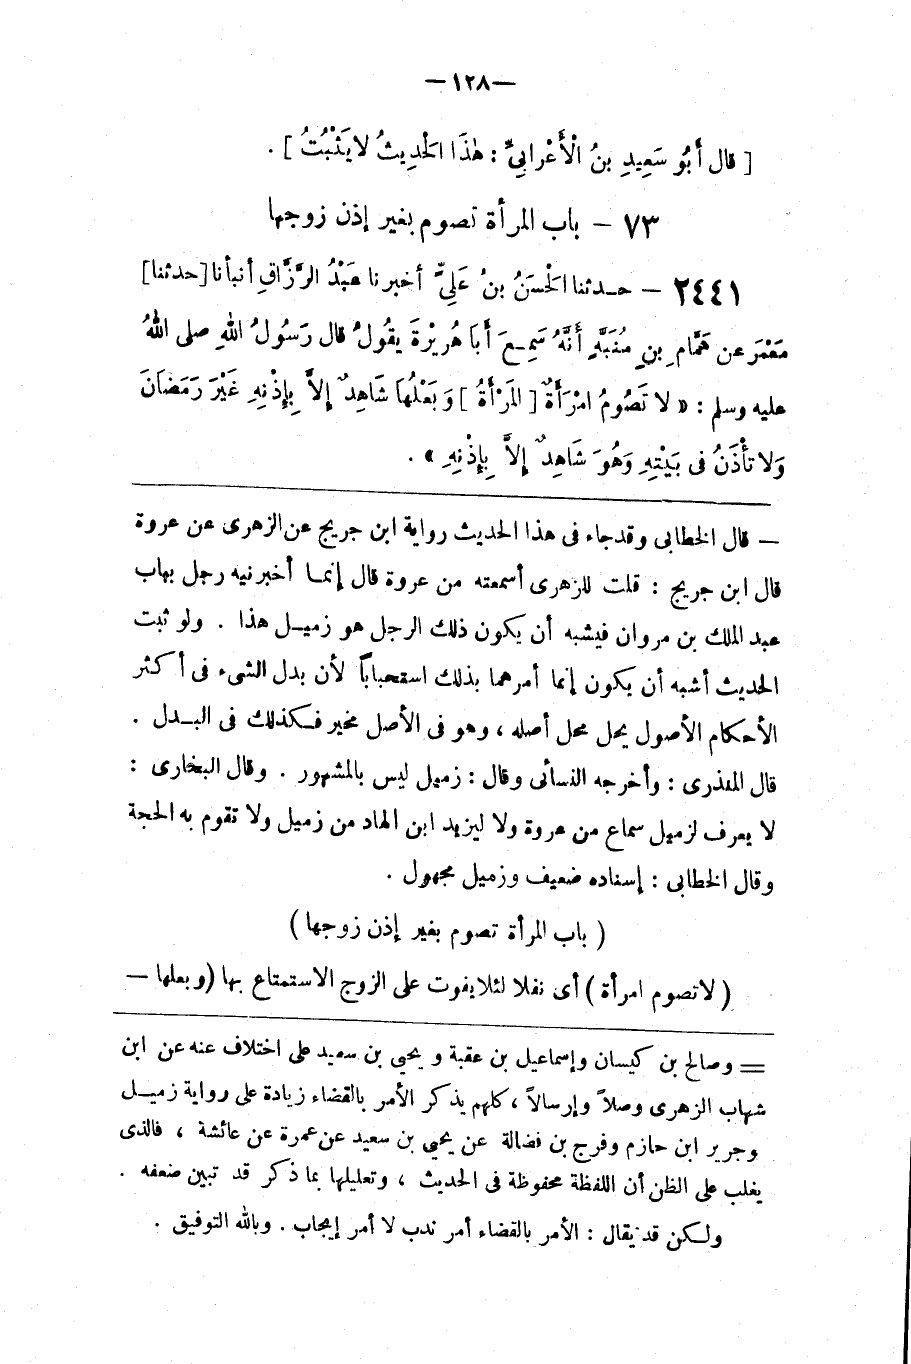 —١٢٨—
[ قال أَبُو سَعِيدِ بنُ الْأَعْرابِيِّ : هٰذَا الحَدِيثُ لا يَثْبُتُ ] .
٧٣ – باب المرأة تصوم بغير إذن زوجها
٢٤٤١ – حـدثنا الحَسَنُ بنُ عَلِيٍّ أخبرنا عَبْدُ الرَّزَّاقِ أنبأنا [حدثنا]
مَعْمَرٌ عن هَمَّامِ بنِ مُنَبِّهٍ أنَّهُ سَمِـعَ أَبَا هُرَيْرَةَ يَقُولُ قال رَسُولُ اللهِ صلى اللهُ
عليه وسلم : « لا تَصُومُ امْرَأَةٌ [ المَرْأَةُ ] وَبَعْلُهَا شَاهِدٌ إلاَّ بِإِذْنِهِ غَيْرَ رَمَضَانَ
وَلا تَأْذَنُ فى بَيْتِهِ وَهُوَ شَاهِدٌ إلاَّ بِإِذْنِهِ » .
— قال الخطابى وقد جاء فى هذا الحديث رواية ابن جريج عن الزهرى عن عروة
قال ابن جريج : قلت للزهرى أسمعته من عروة قال إنمـا أخبرنيه رجل بباب
عبد الملك بن مروان فيشبه أن يكون ذلك الرجل هو زميـل هذا . ولو ثبت
الحديث أشبه أن يكون إنما أمرهما بذلك استحباباً لأن بدل الشىء فى أكثر
الأحكام الأصول يحل محل أصله ، وهو فى الأصل مخير فـكذلك فى البـدل .
قال المنذرى : وأخرجه النسائى وقال : زميل ليس بالمشهور . وقال البخارى :
لا يعرف لزميل سماع من عروة ولا ليزيد ابن الهاد من زميل ولا تقوم به الحجة
وقال الخطابى : إسناده ضعيف وزميل مجهول .
( باب المرأة تصوم بغير إذن زوجها )
( لا تصوم امرأة ) أى نفلا لئلا يفوت على الزوج الاستمتاع بها (وبعلها —
= وصالح بن كيسان وإسماعيل بن عقبة ويحيى بن سعيد على اختلاف عنه عن ابن
شهاب الزهرى وصلاً وإرسالاً ، كلهم يذكر الأمر بالقضاء زيادة على رواية زميـل
وجرير ابن حازم وفرج بن فضالة عن يحيى بن سعيد عن عمرة عن عائشة ، فالذى
يغلب على الظن أن اللفظة محفوظة فى الحديث ، وتعليلها بما ذكر قد تبين ضعفه .
ولـكن قد يقال : الأمر بالقضاء أمر ندب لا أمر إيجاب . وبالله التوفيق .